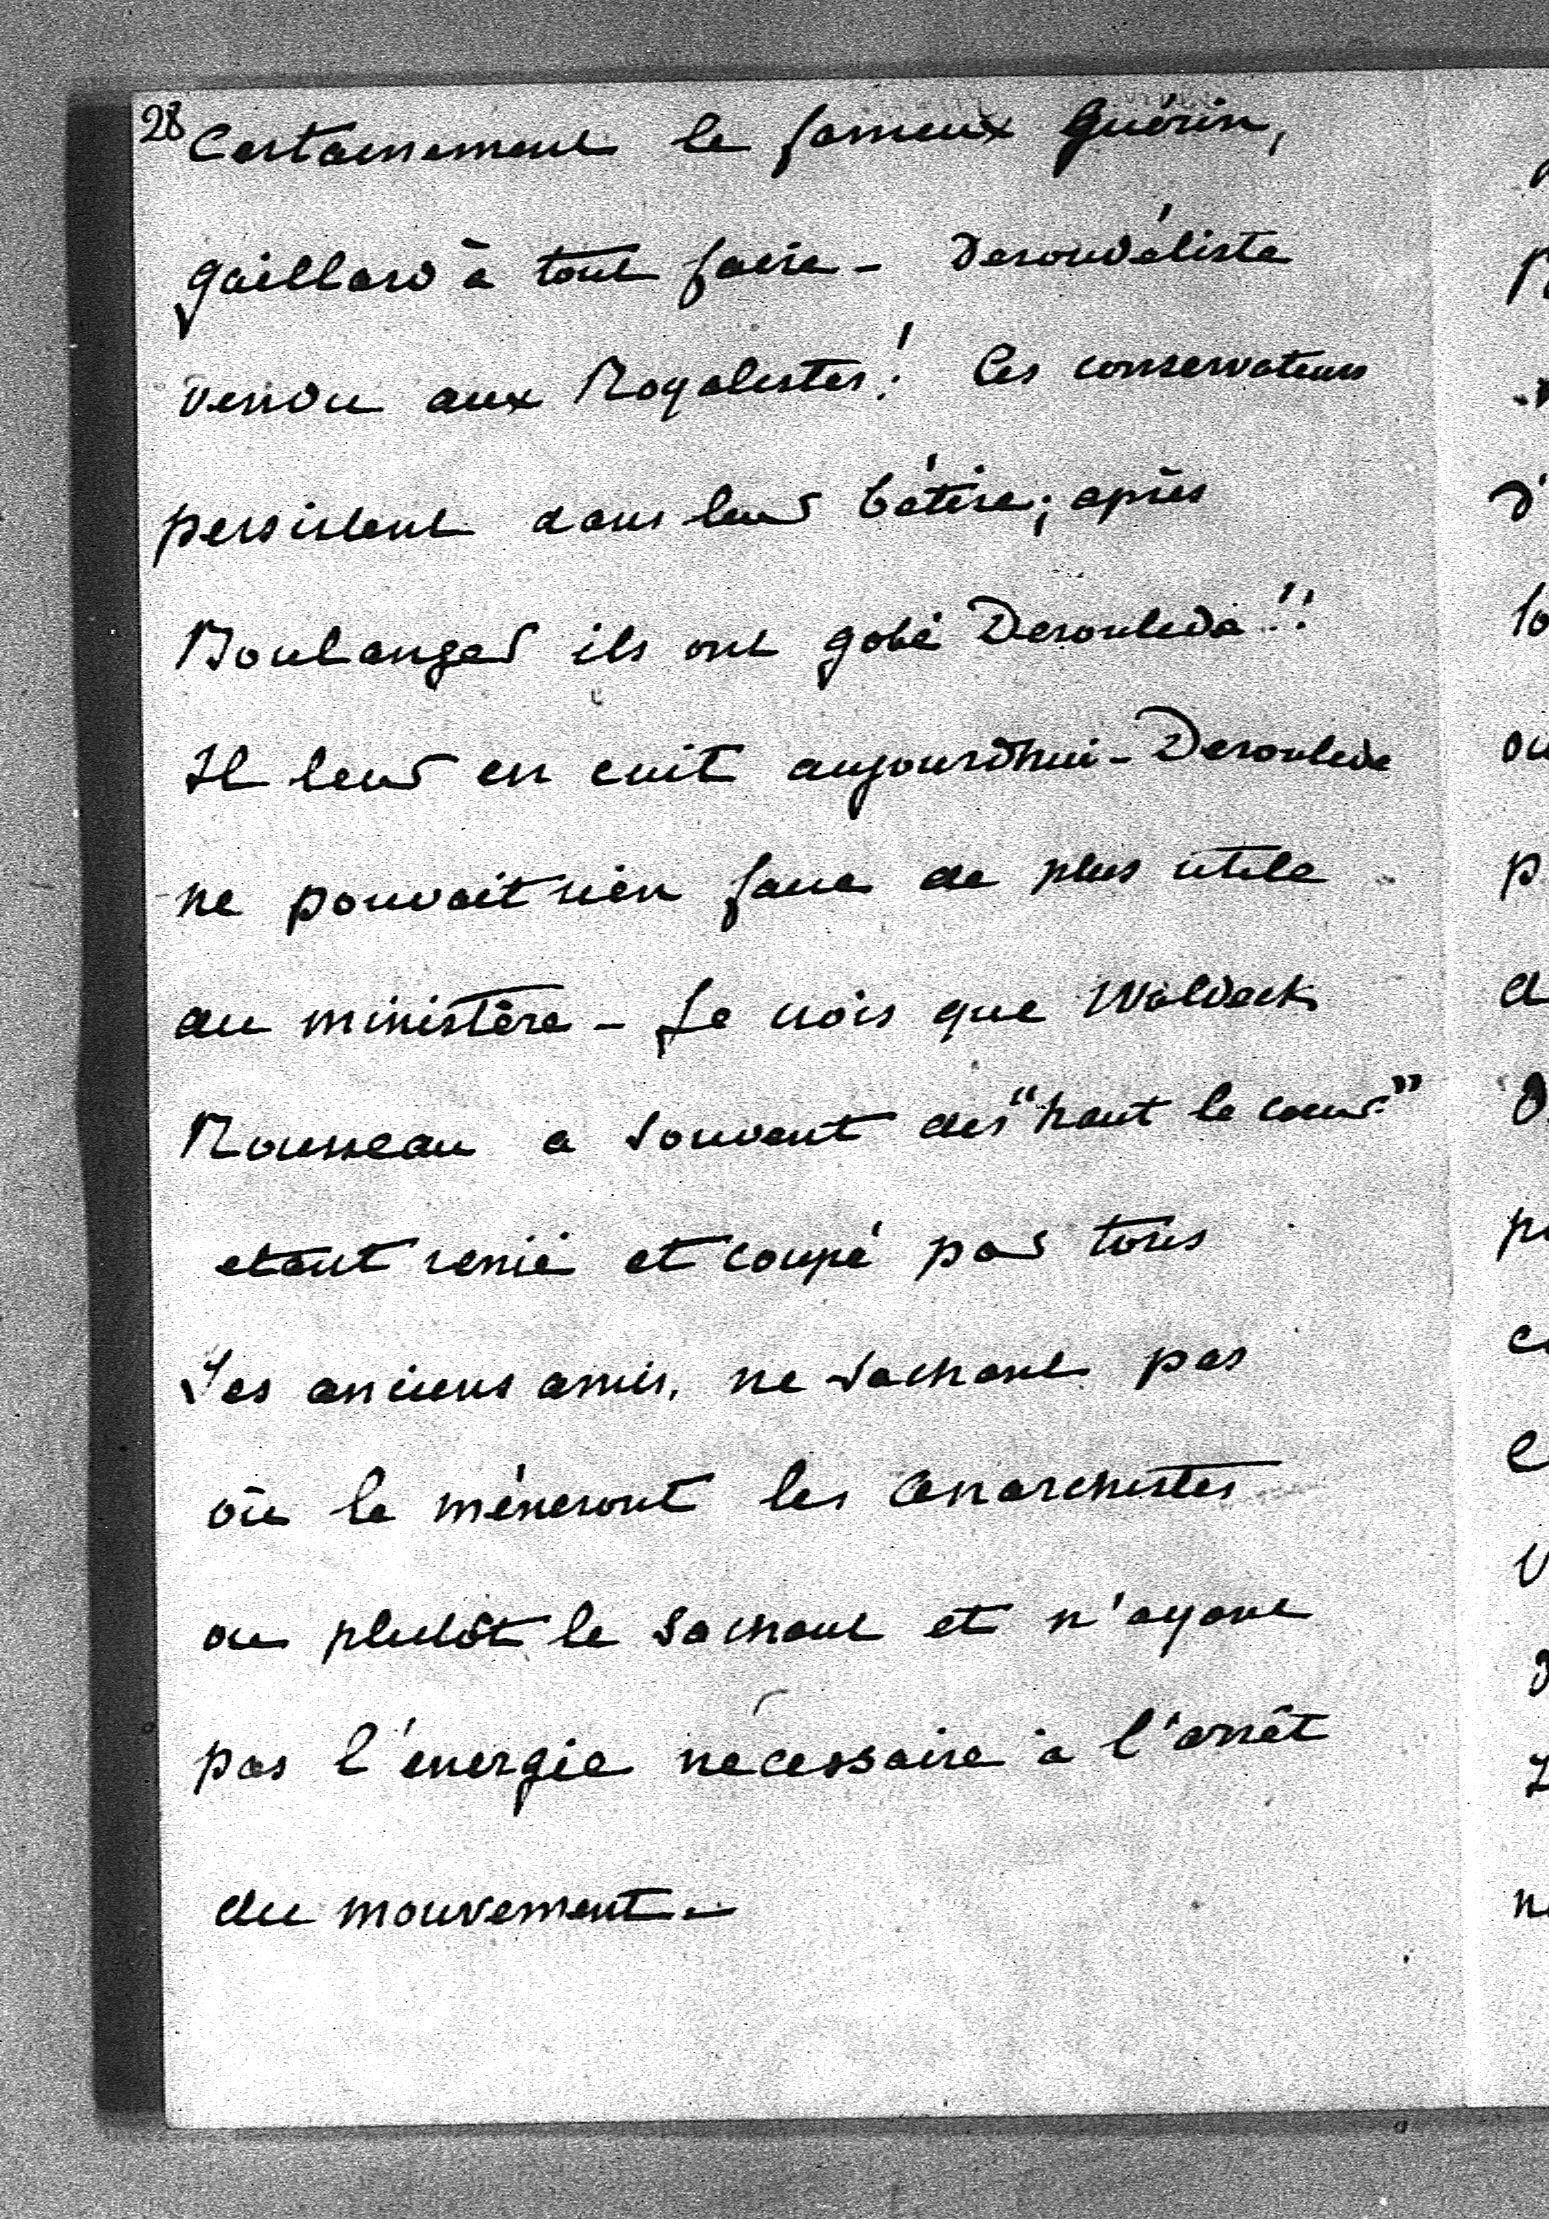 28
Certainement le fameux Guérin,
gaillard à tout faire - Derouléliste
vendu aux Royalistes! Ces conservateurs
persistent dans leur bétise; après
Boulanger ils ont gobé Deroulede!!
Il leur en cuit aujourd'hui - Deroulede
ne pouvait rien faire de plus utile
au ministère - Je crois que Waldeck
Rousseau a souvent des "haut le cœur"
etant renié et coupé par tous
ses anciens amis, ne sachant pas
où le méneront les anarchistes
ou plutôt le sachant et n'ayant
pas l'énergie nécessaire à l'arrêt
du mouvement -